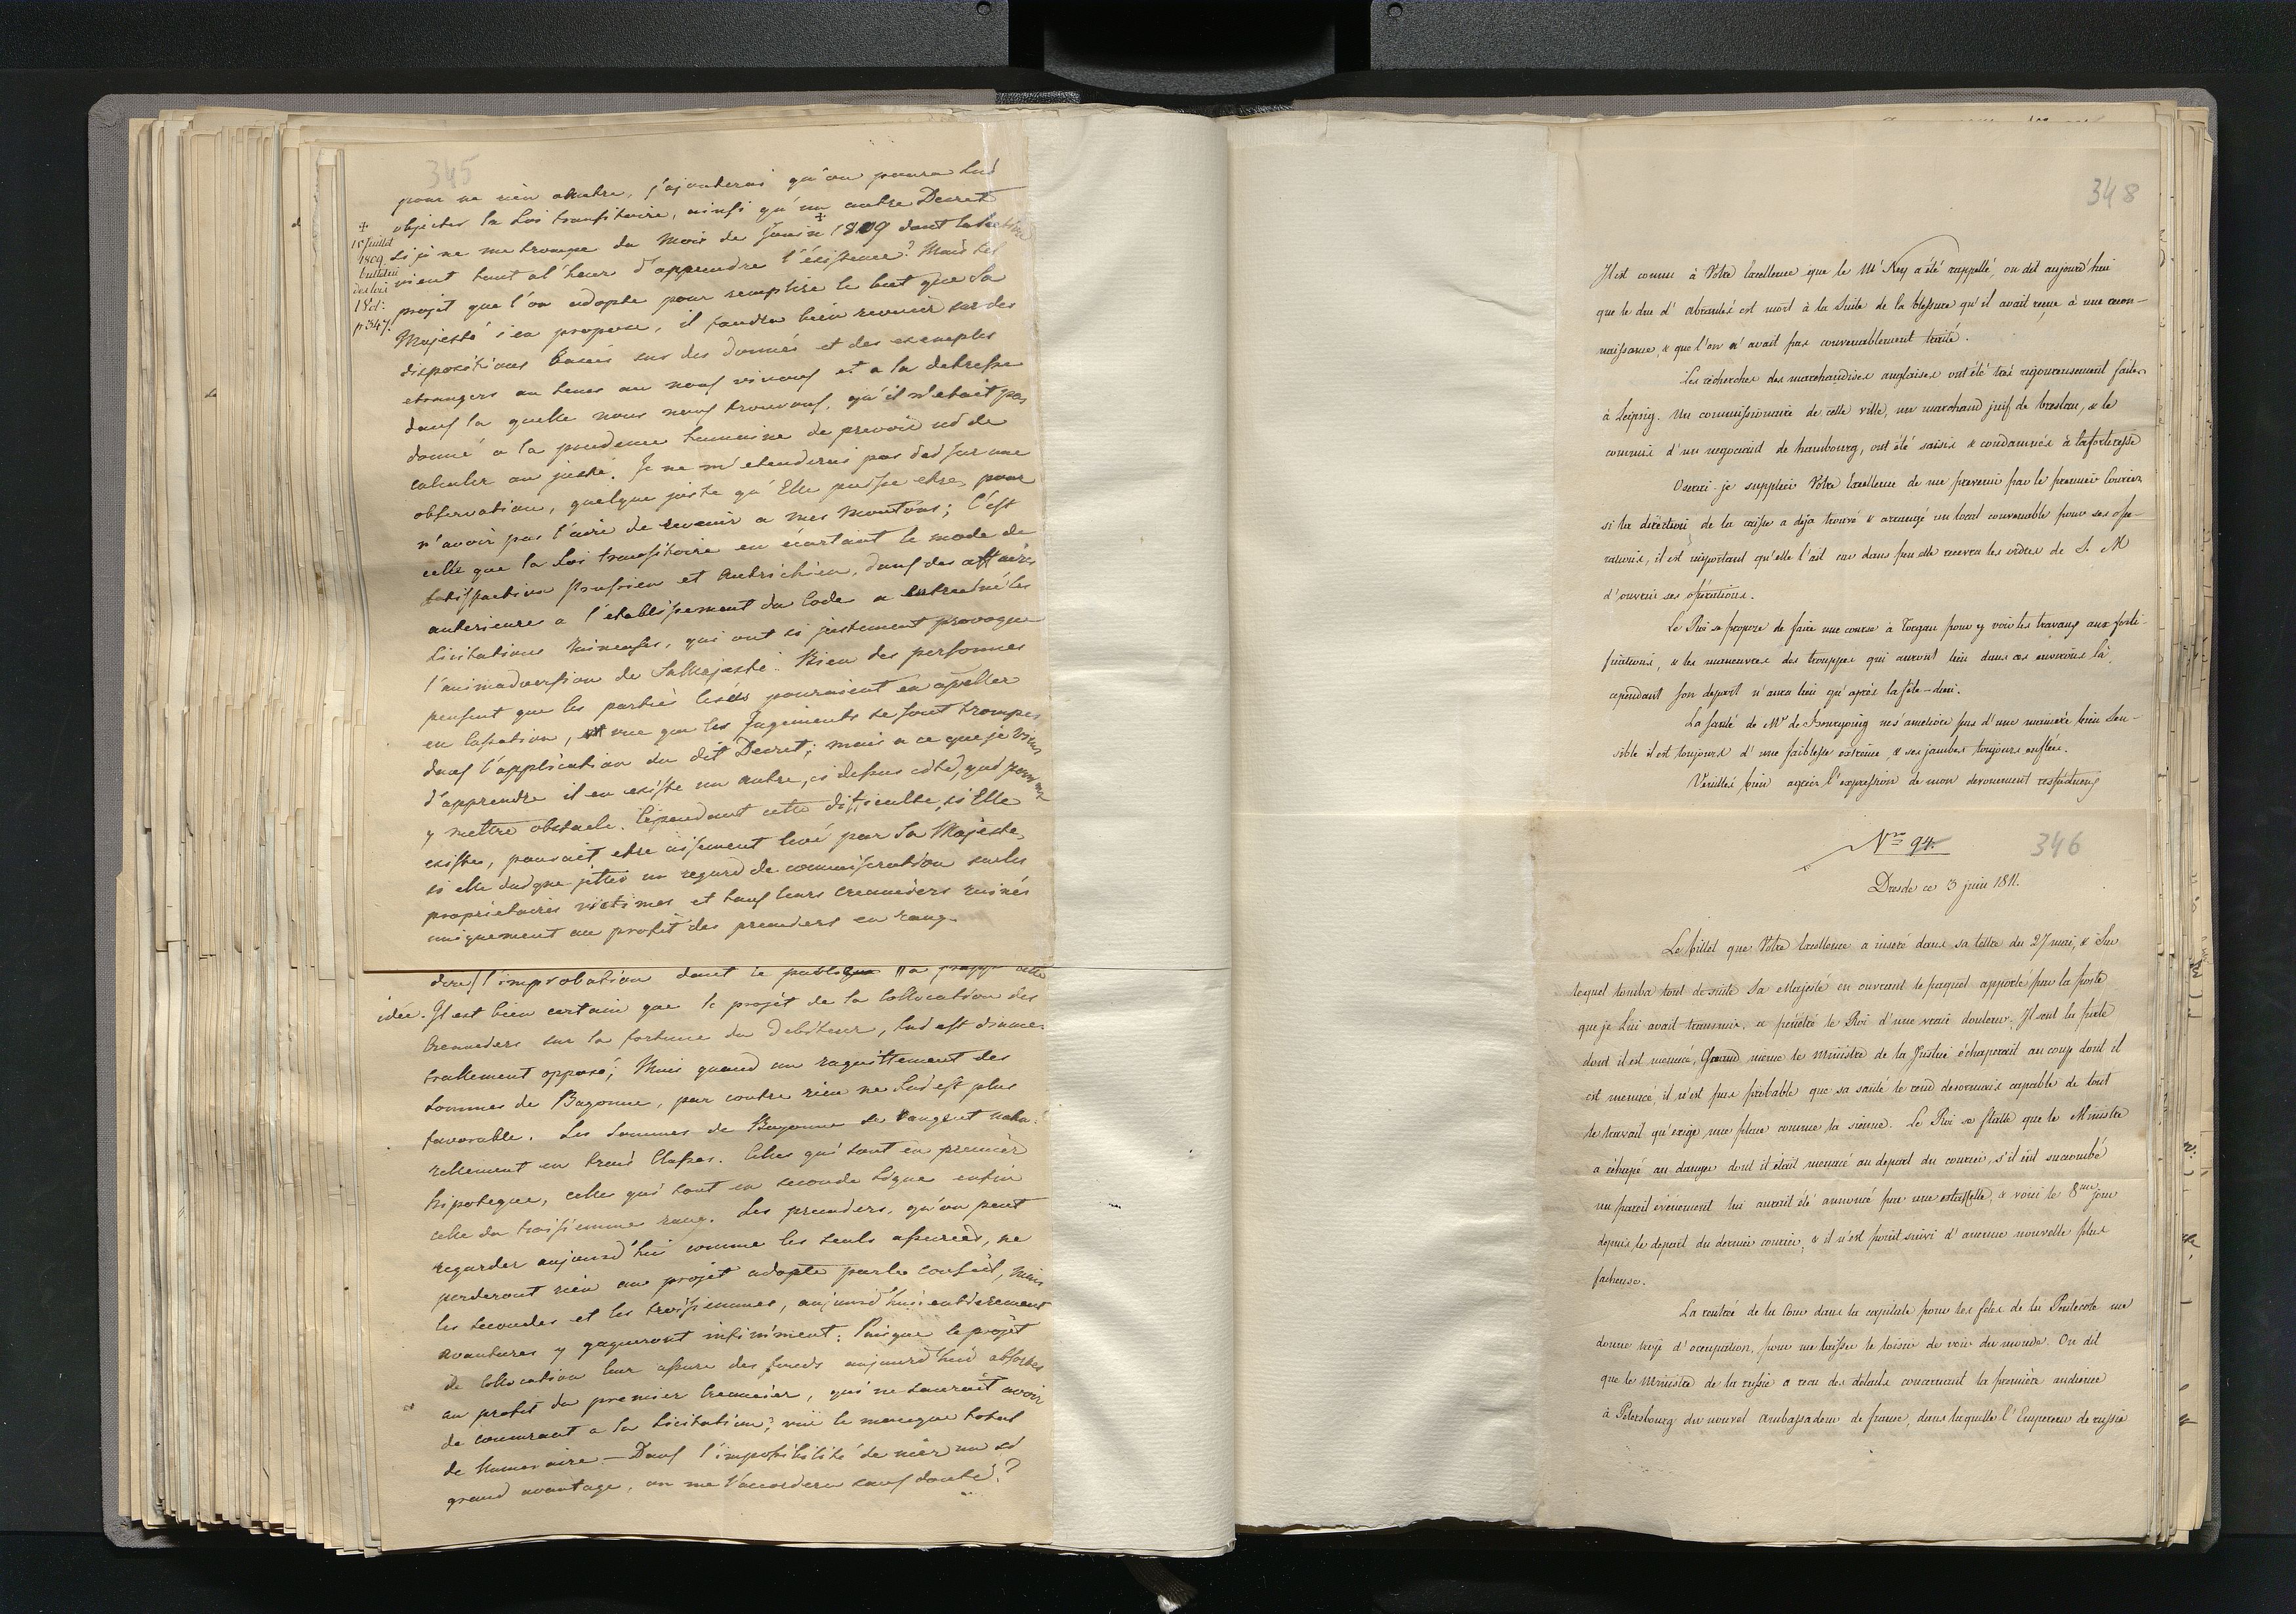 345
pour ne rien omettre, j'ajouterai qu'on poura lui
objecter la Loi transitoire, ainsi qu'un autre Decret
si je ne me trompe du Mois de Juin 1809 dont la
vient tout al'heure d'apprendre l'éxistence? Mais tel
projet que l'on adopte pour remplire le but que Sa
Majesté s'en propose, il faudra bien revenir sur des
dispositions basées sur des donnés et des exemples
etrangers au tems au nous vivons et a la detresse
dans la quelle nous nous trouvons, qu'il n'etait pas
donné a la prudence humaine de prevoir ni de
calculer au juste. Je ne m'etenderai pas ici sur une
observation, quelque juste qu'Elle puisse etre, pour
n'avoir pas l'aire de revenir a mes moutons; C'est
celle que la Loi transitoire en écartant le mode de
satisfaction Prussien et Autrichien, dans des affaires
anterieures a l'etablissement du Code a entrainé les
Licitations ruineuses, qui ont si justement provoque
l'animadversion de Sa Majesté. Bien des personnes
pensent que les parties lesées pouraient en apeller
en Cassation, vue que les Jugements se sont trompes
dans l'application du dit Decret; mais a ce que je viens
d'apprendre il en existe un autre, ci dessus cité, qui
y mettre obstacle. Cependant cette dificulte, si Elle
existe, pouroit etre aisement levé par Sa Majeste,
si elle daigne jetter un regard de commiseration sur les
proprietaires victimes et tous leurs creanciers ruinés
uniquement au profit des premiers en rang.
‡
10 Juillet
1809
bulletin
des loix
1 Vol:
p 347.
l'improbation dont le publique a frappé cette
idée. Il est bien certain que le projèt de la Collocation des
Creanciers sur la fortune du Debiteur, lui est diame-
trallement opposé; Mais quand au raquittement des
sommes de Bayonne, par contre rien ne lui est plus
favorable. Les sommes de Bayonne se rangent natu-
rellement en trois Classes. Celles qui sont en premier
hipoteque, celle qui sont en seconde ligne enfin
celle du troisiemme rang. Les premiers, qu'on peut
regarder aujourd'hui comme les seuls assurées, ne
perderont rien au projèt adopte par le conseil, mais
les secondes et les troisiemmes, aujourd'hui entierement
avantures y gagneront infiniment: Puisque le projèt
de Collocation leur assure des fonds aujourd'hui absorbés
au profit du premier Creancier, qui ne sauroit avoir
de concurant a la Licitation; vüe le manque total
de Numeraire — Dans l'impossibilité de nier un si
grand avantage, on me l'accordera sans doute?
348
Il est connu à Votre Excellence que le Ml Ney a été rappellé, on dit aujourd'hui
que le duc d'Abrantés est mort à la Suite de la blessure qu'il avait reçue à une recon-
naissance, & que l'on n'avait pas convenablement traité.
Les recherches des marchandises anglaises ont été tres rigoureusement faites
à Leipsig. Un commissionnaire de cette ville, un marchand juif de breslau, & le
commis d'un negociant de hambourg, ont été saisis & condamnés à la forteresse
Oserai-je supplier Votre Excellence de me prevenir par le premier Courier
si la direction de la caisse a déja trouvé & arrangé un local convenable pour ses ope-
rations, il est important qu'elle l'ait car dans peu elle recevra les ordres de S. M
d'ouvrir ses opérations.
Le Roi se propose de faire une course à Torgau pour y voir les travaux aux forti-
fications, & les manœuvres des trouppes qui auront lieu dans ces environs là,
cependant son depart n'aura lieu qu'après la fête-dieu.
La santé de Mr de Bourgoing ne s'améliore pas d'une maniere bien Sen-
sible il est toujours d'une faiblesse extreme, & ses jambes toujours enflées.
Veuillés bien agréer l'expression de mon devouement respectueux
Nro 94.
346
Dresde ce 3 juin 1811.
Le billet que Votre Excellence a inseré dans sa lettre du 27 mai, & Sur
lequel tomba tout de suite Sa Majesté en ouvrant le paquet apporté par la poste
que je Lui avait transmis, a pénétré le Roi d'une vraie douleur. Il sent la perte
dont il est menacé, Quand même le Ministre de la Justice échaperait au coup dont il
est menacé, il n'est pas probable que sa santé le rend desormais capable de tout
le travail qu'exige une place comme la sienne. Le Roi se flatte que le Ministre
a echapé au danger dont il était menacé au depart du courrier, s'il eut succombé
un pareil événement lui aurait été annoncé par une estaffette, & voici le 8me jour
depuis le depart du dernier courier, & il n'est point suivi d'aucune nouvelle plus
facheuse.
La rentrée de la Cour dans la capitale pour les fêtes de la Pentecote me
donne trop d'occupation, pour me laisser le loisir de voir du monde. On dit
que le Ministre de la russie a recu des details concernant la première audience
à Petersbourg du nouvel Ambassadeur de france, dans laquelle l'Empereur de russie